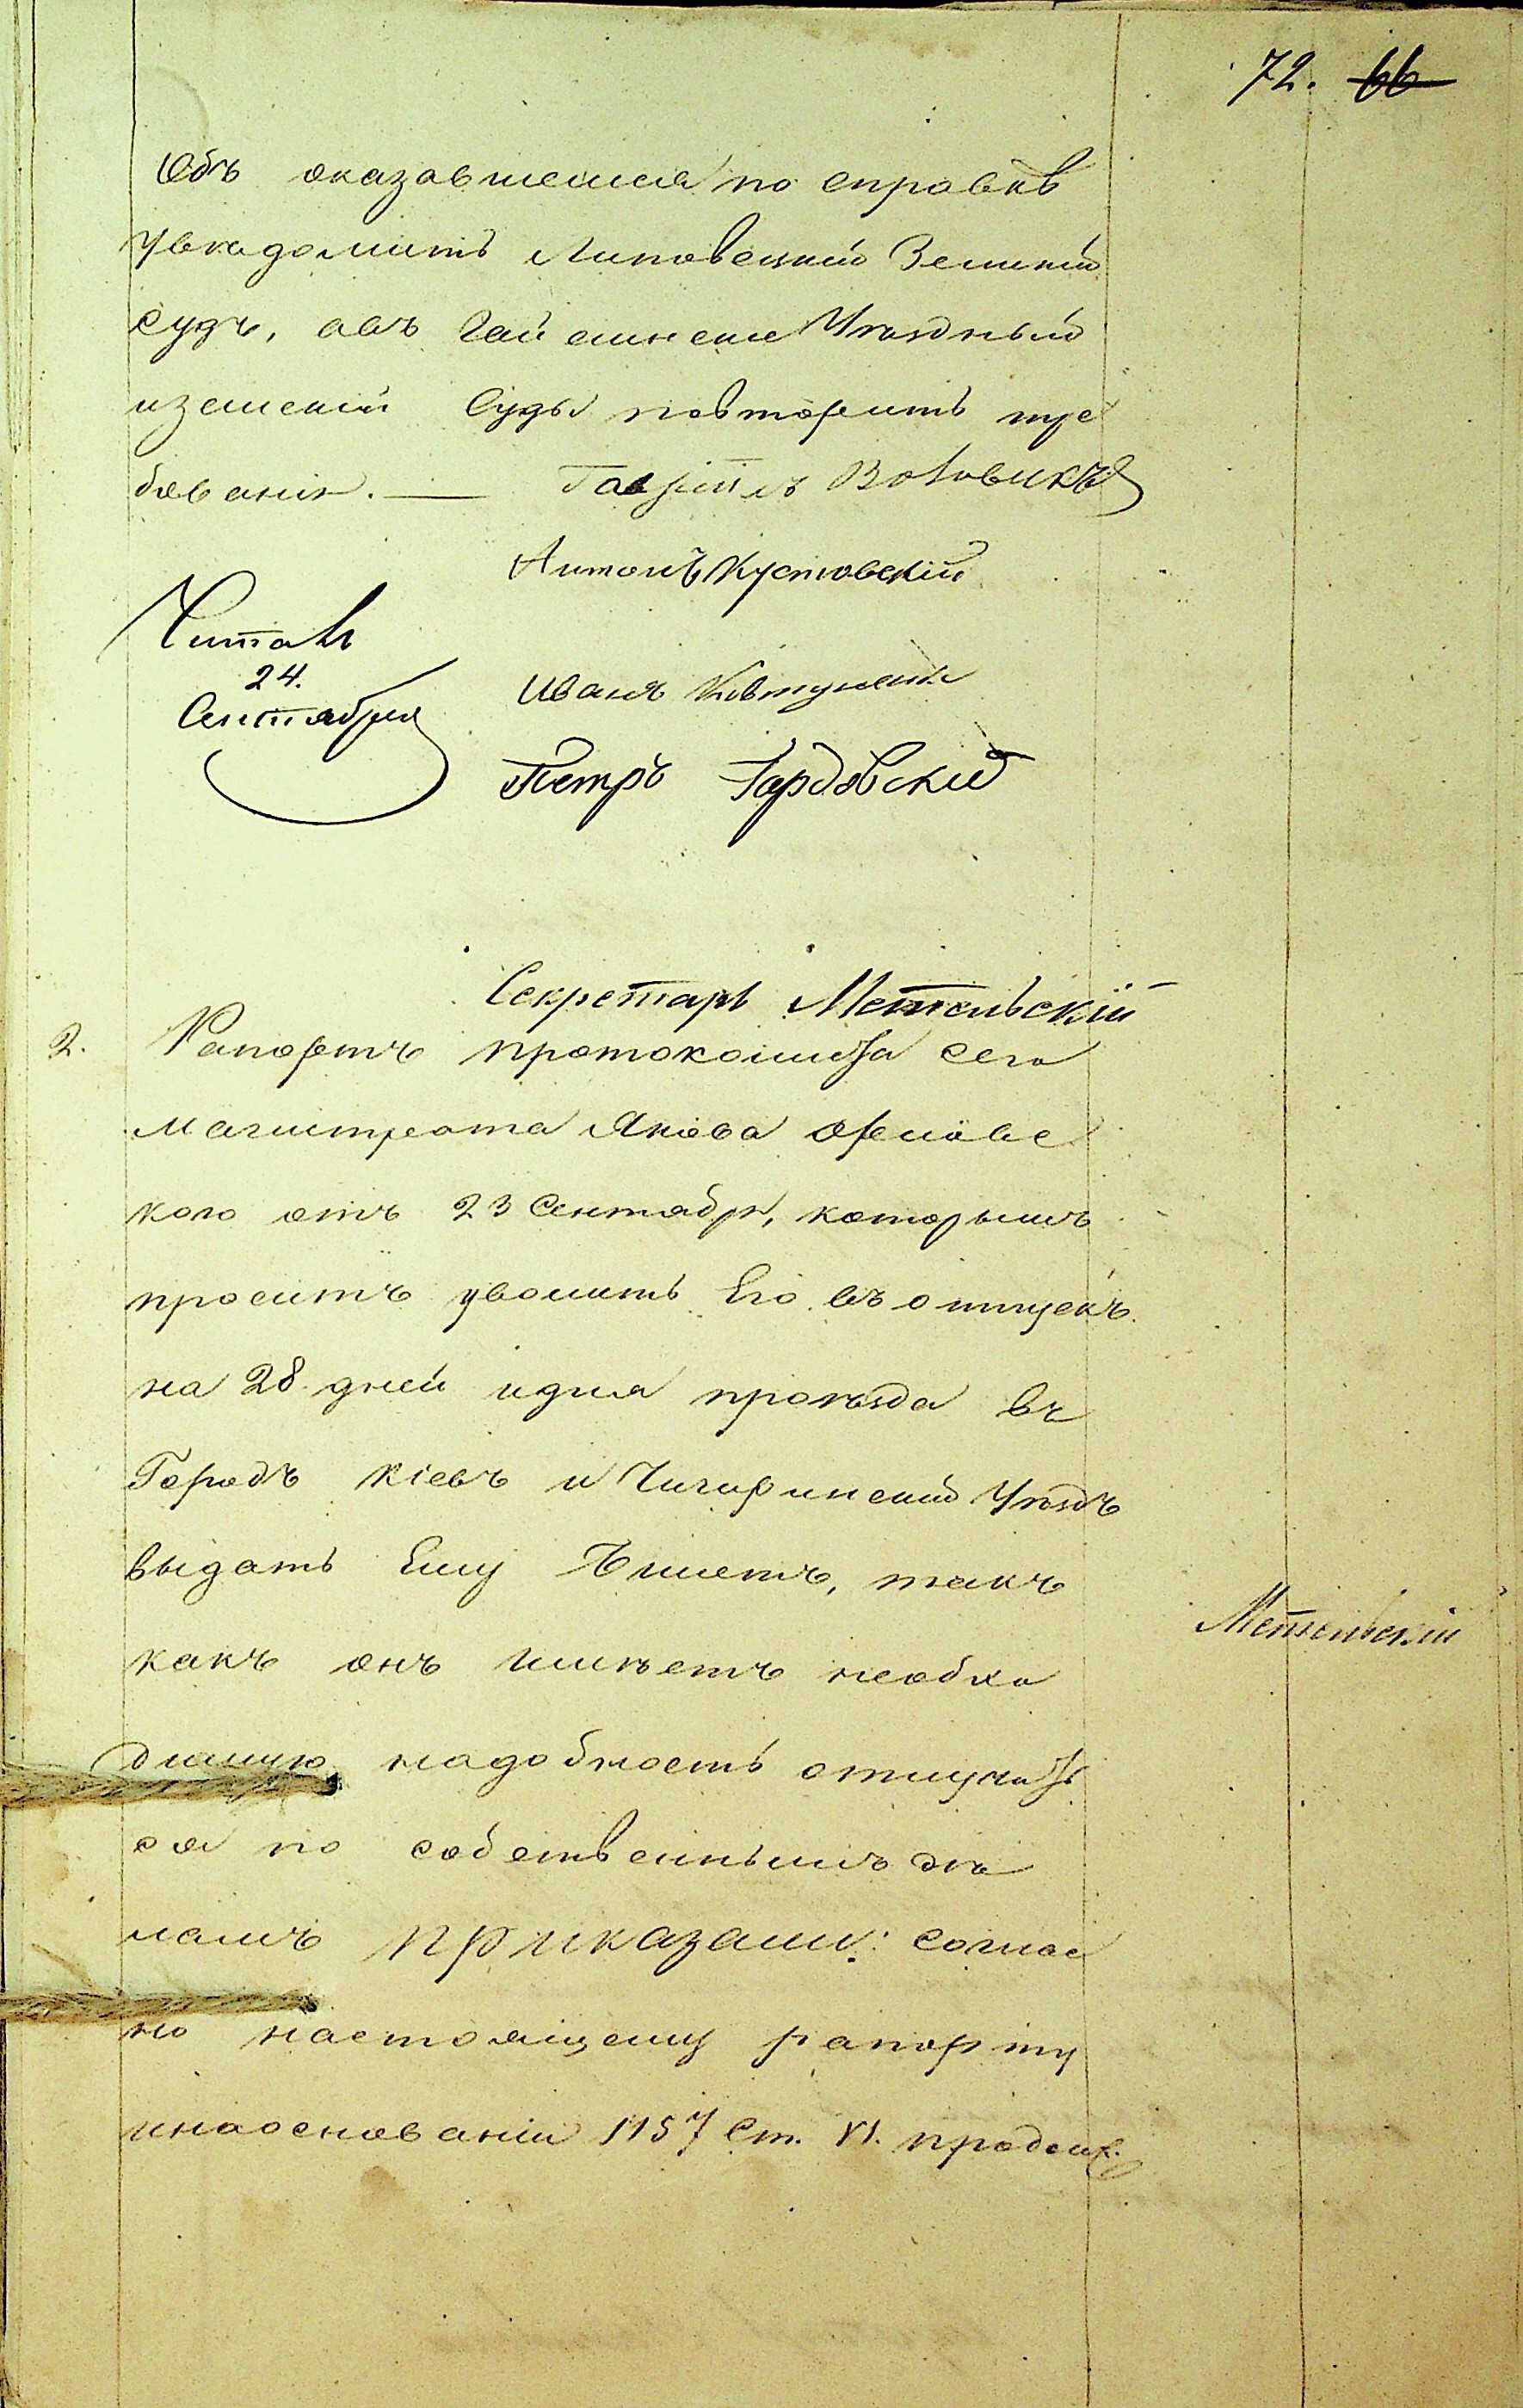 72. 66
Объ оказавшемся по справкѣ
Увѣдомить Липовецкій Земскій
Судъ, авъ Гайсинскіе Уѣздный
иземскій Суды повторить тре
бованія. —
Гавріилъ Вововикъ
Антонъ Кустовскій
Читалъ
24.
Сентября
Иванъ Ковтуненко
Петръ Гардовскій
Секретарь Метельскій
2. Рапортъ протоколиста сего
магистрата Якова Орловс
кого отъ 23 Сентябр, которымъ
проситъ уволить Его въ отпускъ
на 28 дней идля проѣзда въ
Городъ Кіевъ и Чигиринскій Уѣздъ
выдать Ему Билетъ, такъ
какъ онъ имѣетъ необхо
димую надобность отлучить
ся по собственнымъ дѣ
ламъ приказали: соглас
но настоящему рапорту
инаоснованіи 1157 Ст. VI. продолж.
Метельскій